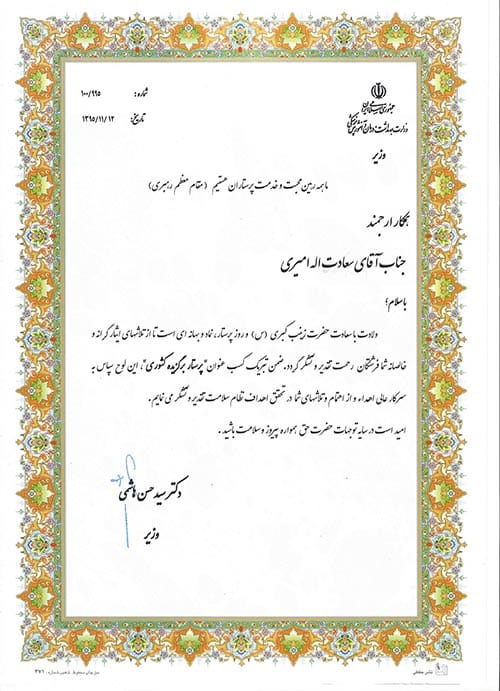 جمهوری اسلامی ایران
وزارت بهداشت، درمان و آموزش پزشکی
وزیر
شماره : ۱۰۰/۹۹۵
تاریخ: ۱۳۹۵/۱۱/۱۳
ما همه رهین محبت و خدمت پرستاران هستیم (مقام معظم رهبری)
همکار ارجمند
جناب آقای سعادت اله امیری
با سلام؛
ولادت با سعادت حضرت زینب کبری (س) و روز پرستار، نماد و بهانه ای است تا از تلاشهای ایثارگرانه و
خالصانه شما فرشتگان رحمت تقدیر و تشکر گردد. ضمن تبریک کسب عنوان "پرستار برگزیده کشوری"، این لوح سپاس به
سرکار عالی اهداء و از اهتمام و تلاشهای شما در تحقق اهداف نظام سلامت تقدیر و تشکر می نمایم.
امید است در سایه توجهات حضرت حق همواره پیروز و سلامت باشید.
دکتر سید حسن هاشمی
وزیر